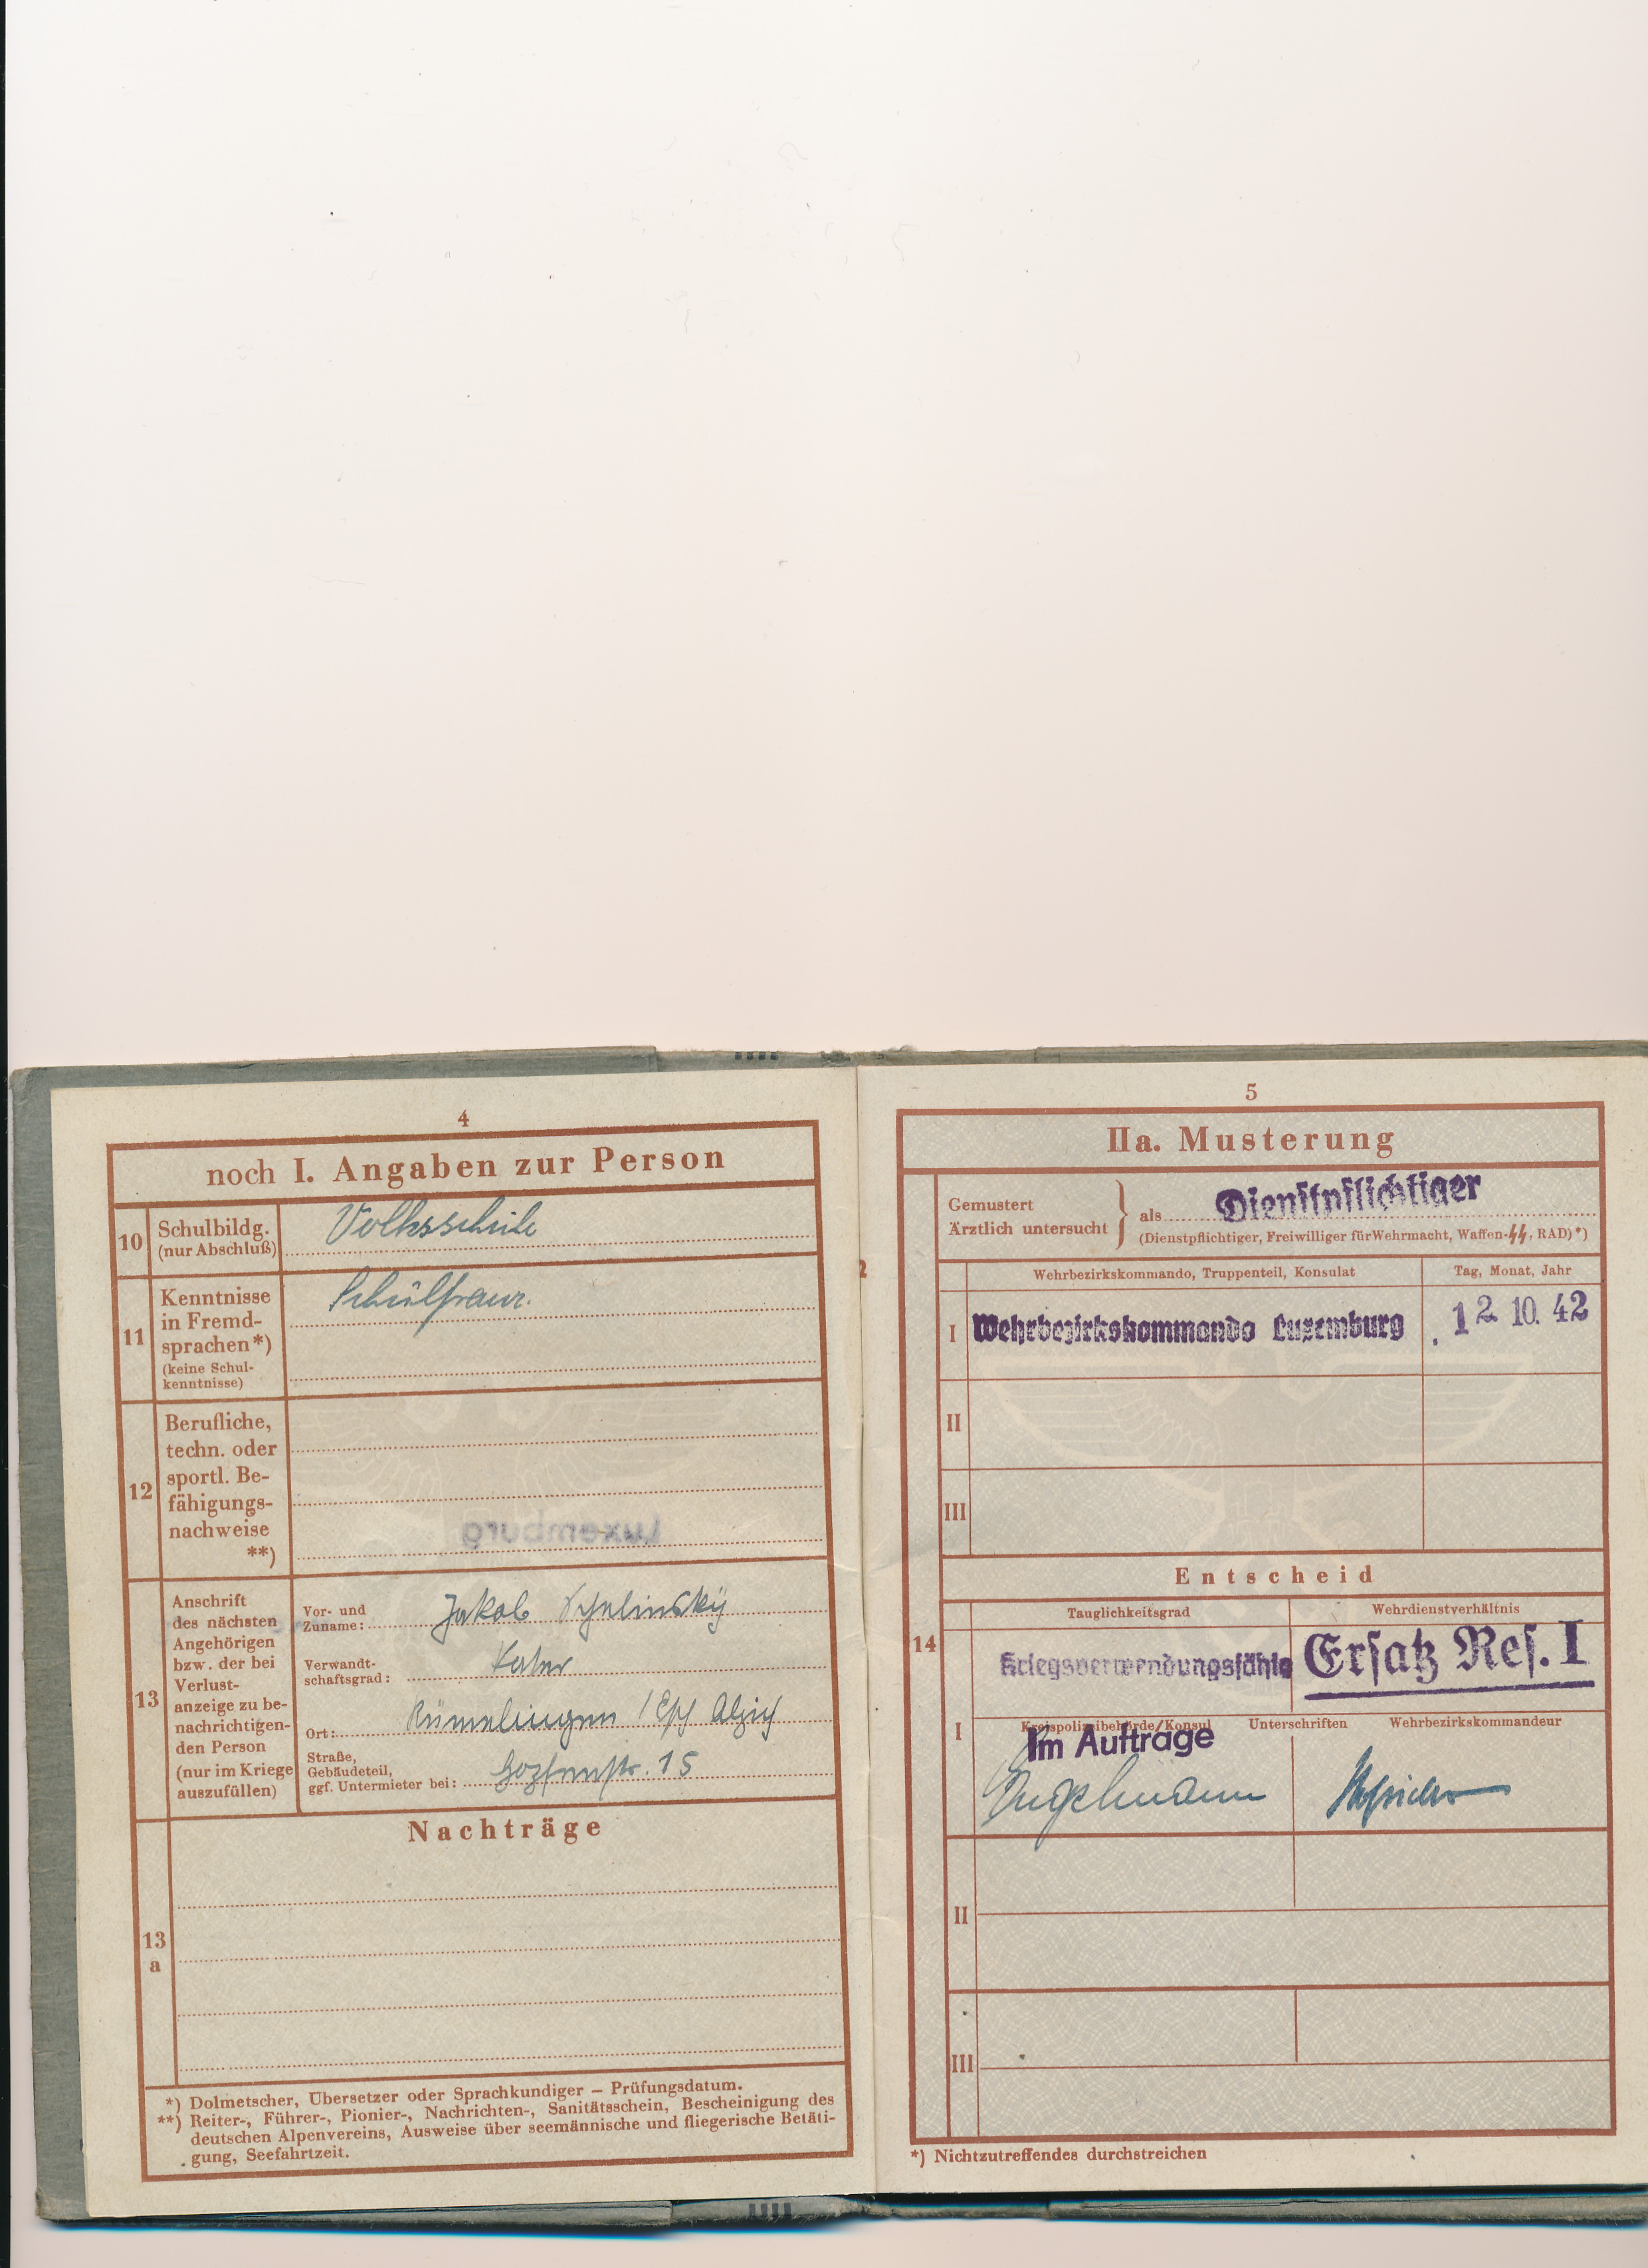 4
noch I. Angaben zur Person
10
Schulbildg.
(nur Abschluß)
Volksschule
11
Kenntnisse
in Fremd-
sprachen*)
(keine Schul-
kenntnisse)
Schulfranz.
12
Berufliche,
techn. oder
sportl. Be-
fähigungs-
nachweise
**)
Luxemburg
13
Anschrift
des nächsten
Angehörigen
bzw. der bei
Verlust-
anzeige zu be-
nachrichtigen-
den Person
(nur im Kriege
auszufüllen)
Vor- und
Zuname: Jakob
Verwandt-
schaftsgrad: Vater
Ort: Rümelingen / Esch Alzig
Straße,
Gebäudeteil,
ggf. Untermieter bei: 15
Nachträge
13
a
*) Dolmetscher, Übersetzer oder Sprachkundiger – Prüfungsdatum.
**) Reiter-, Führer-, Pionier-, Nachrichten-, Sanitätsschein, Bescheinigung des
deutschen Alpenvereins, Ausweise über seemännische und fliegerische Betäti-
gung, Seefahrtzeit.
5
IIa. Musterung
Gemustert
Ärztlich untersucht
} als Dienstpflichtiger
(Dienstpflichtiger, Freiwilliger für Wehrmacht, Waffen-SS, RAD)*)
Wehrbezirkskommando, Truppenteil, Konsulat
Tag, Monat, Jahr
I Wehrbezirkskommando Luxemburg 12. 10. 42
II
III
Entscheid
14
Tauglichkeitsgrad
Wehrdienstverhältnis
Kriegsverwendungsfähig
Ersatz Res. I
I
Kreispolizeibehörde/Konsul Unterschriften Wehrbezirkskommandeur
Im Auftrage
Engelmann
II
III
*) Nichtzutreffendes durchstreichen